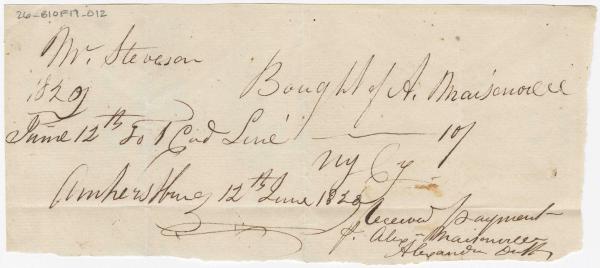 26-B10F19-012
Mr. Steveson
Bought of A. Maisonville
1829
June 12th To 1 Cod Line 10/
NY Cy
Amherstburg 12th June 1829
Received payment
f. Alex Maisonville
Alexander